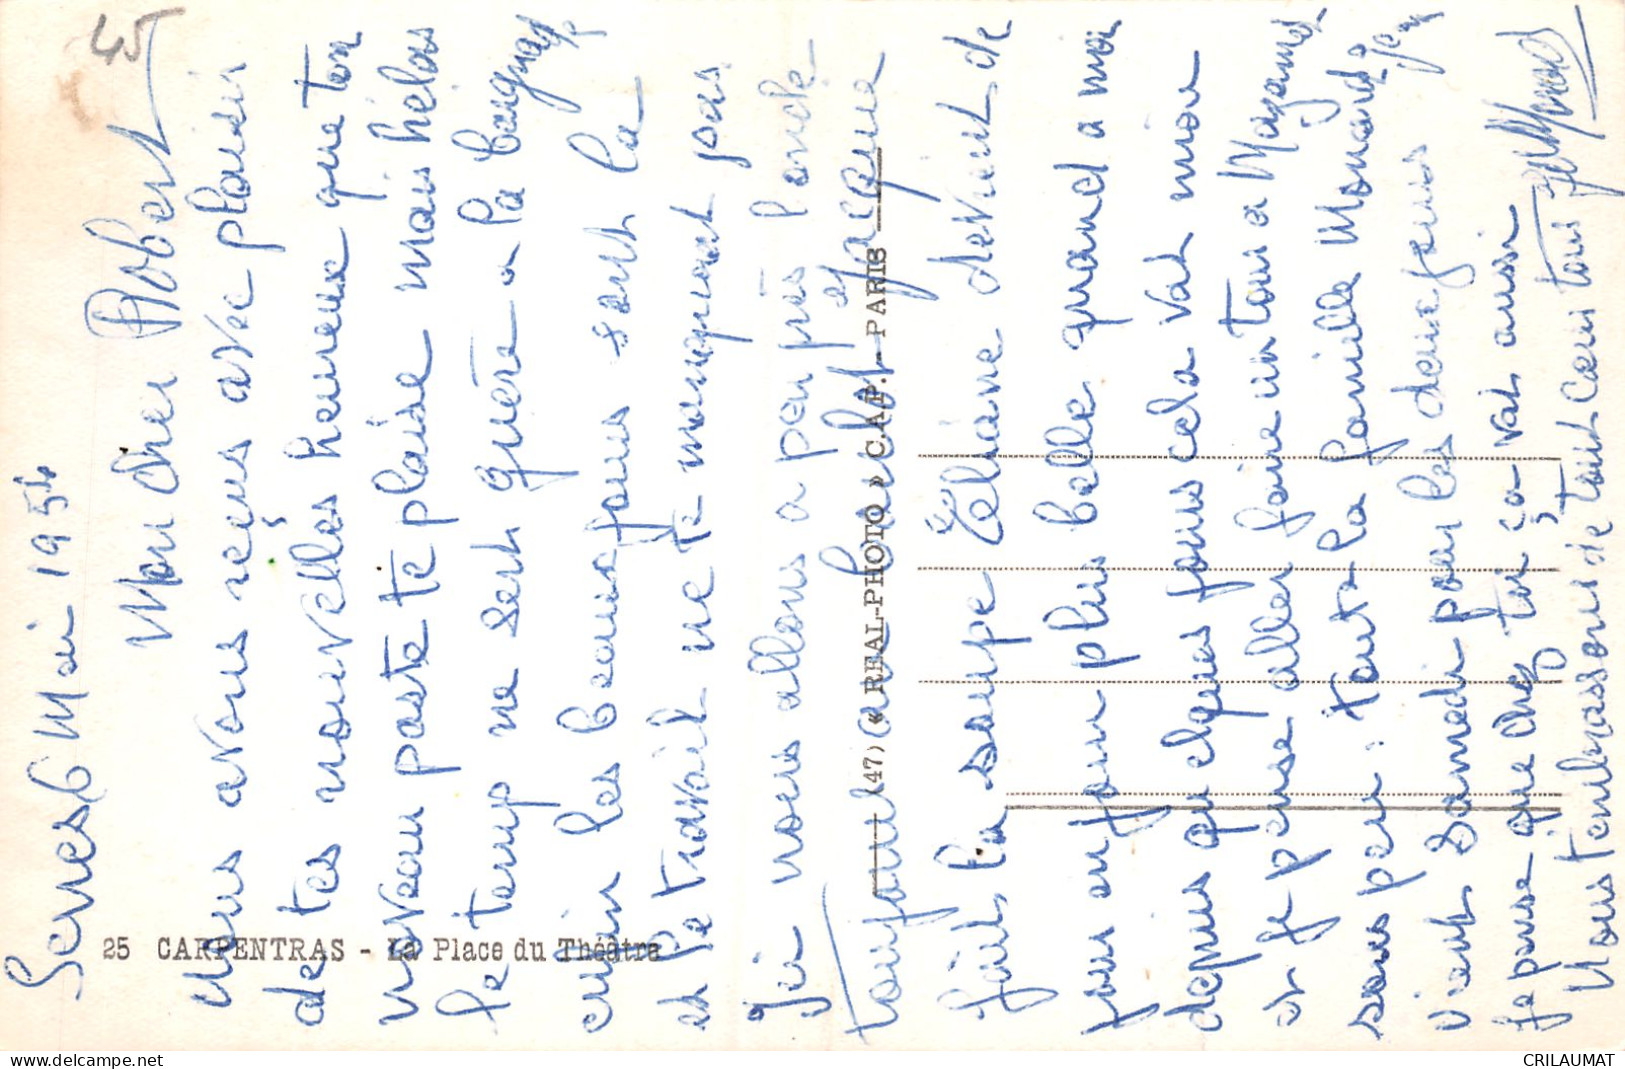 45
Serres 6 Mai 1954
Mon cher Robert
Nous avons reçus avec plaisir
de tes nouvelles heureux que ton
nouveau poste te plaise mais hélas
le temp ne sert guère a la
enfin les beaux jours sont la
et le travail ne te manquerat pas
Ici nous allons a peu près l'oncle
toujours et Jacque
fait la soupe Eliane devient de
jour en jour plus belle quand a moi
depuis quelques jours cela vat mieux
et je pense aller faire un tour a Mazamet
sous peu: toute la famille Monard
vient samedi pour les deux jours
je pense que chez toi ça vat aussi
Nous t'embrassons de tout cœur tous
25 CARPENTRAS - La Place du Théâtre
(47) « REAL-PHOTO » C.A.P. - PARIS
www.delcampe.net
CRILAUMAT